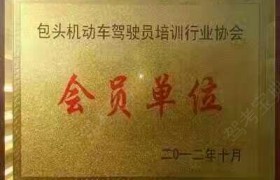 包头机动车驾驶员培训行业协会
会员单位
二〇一二年十月